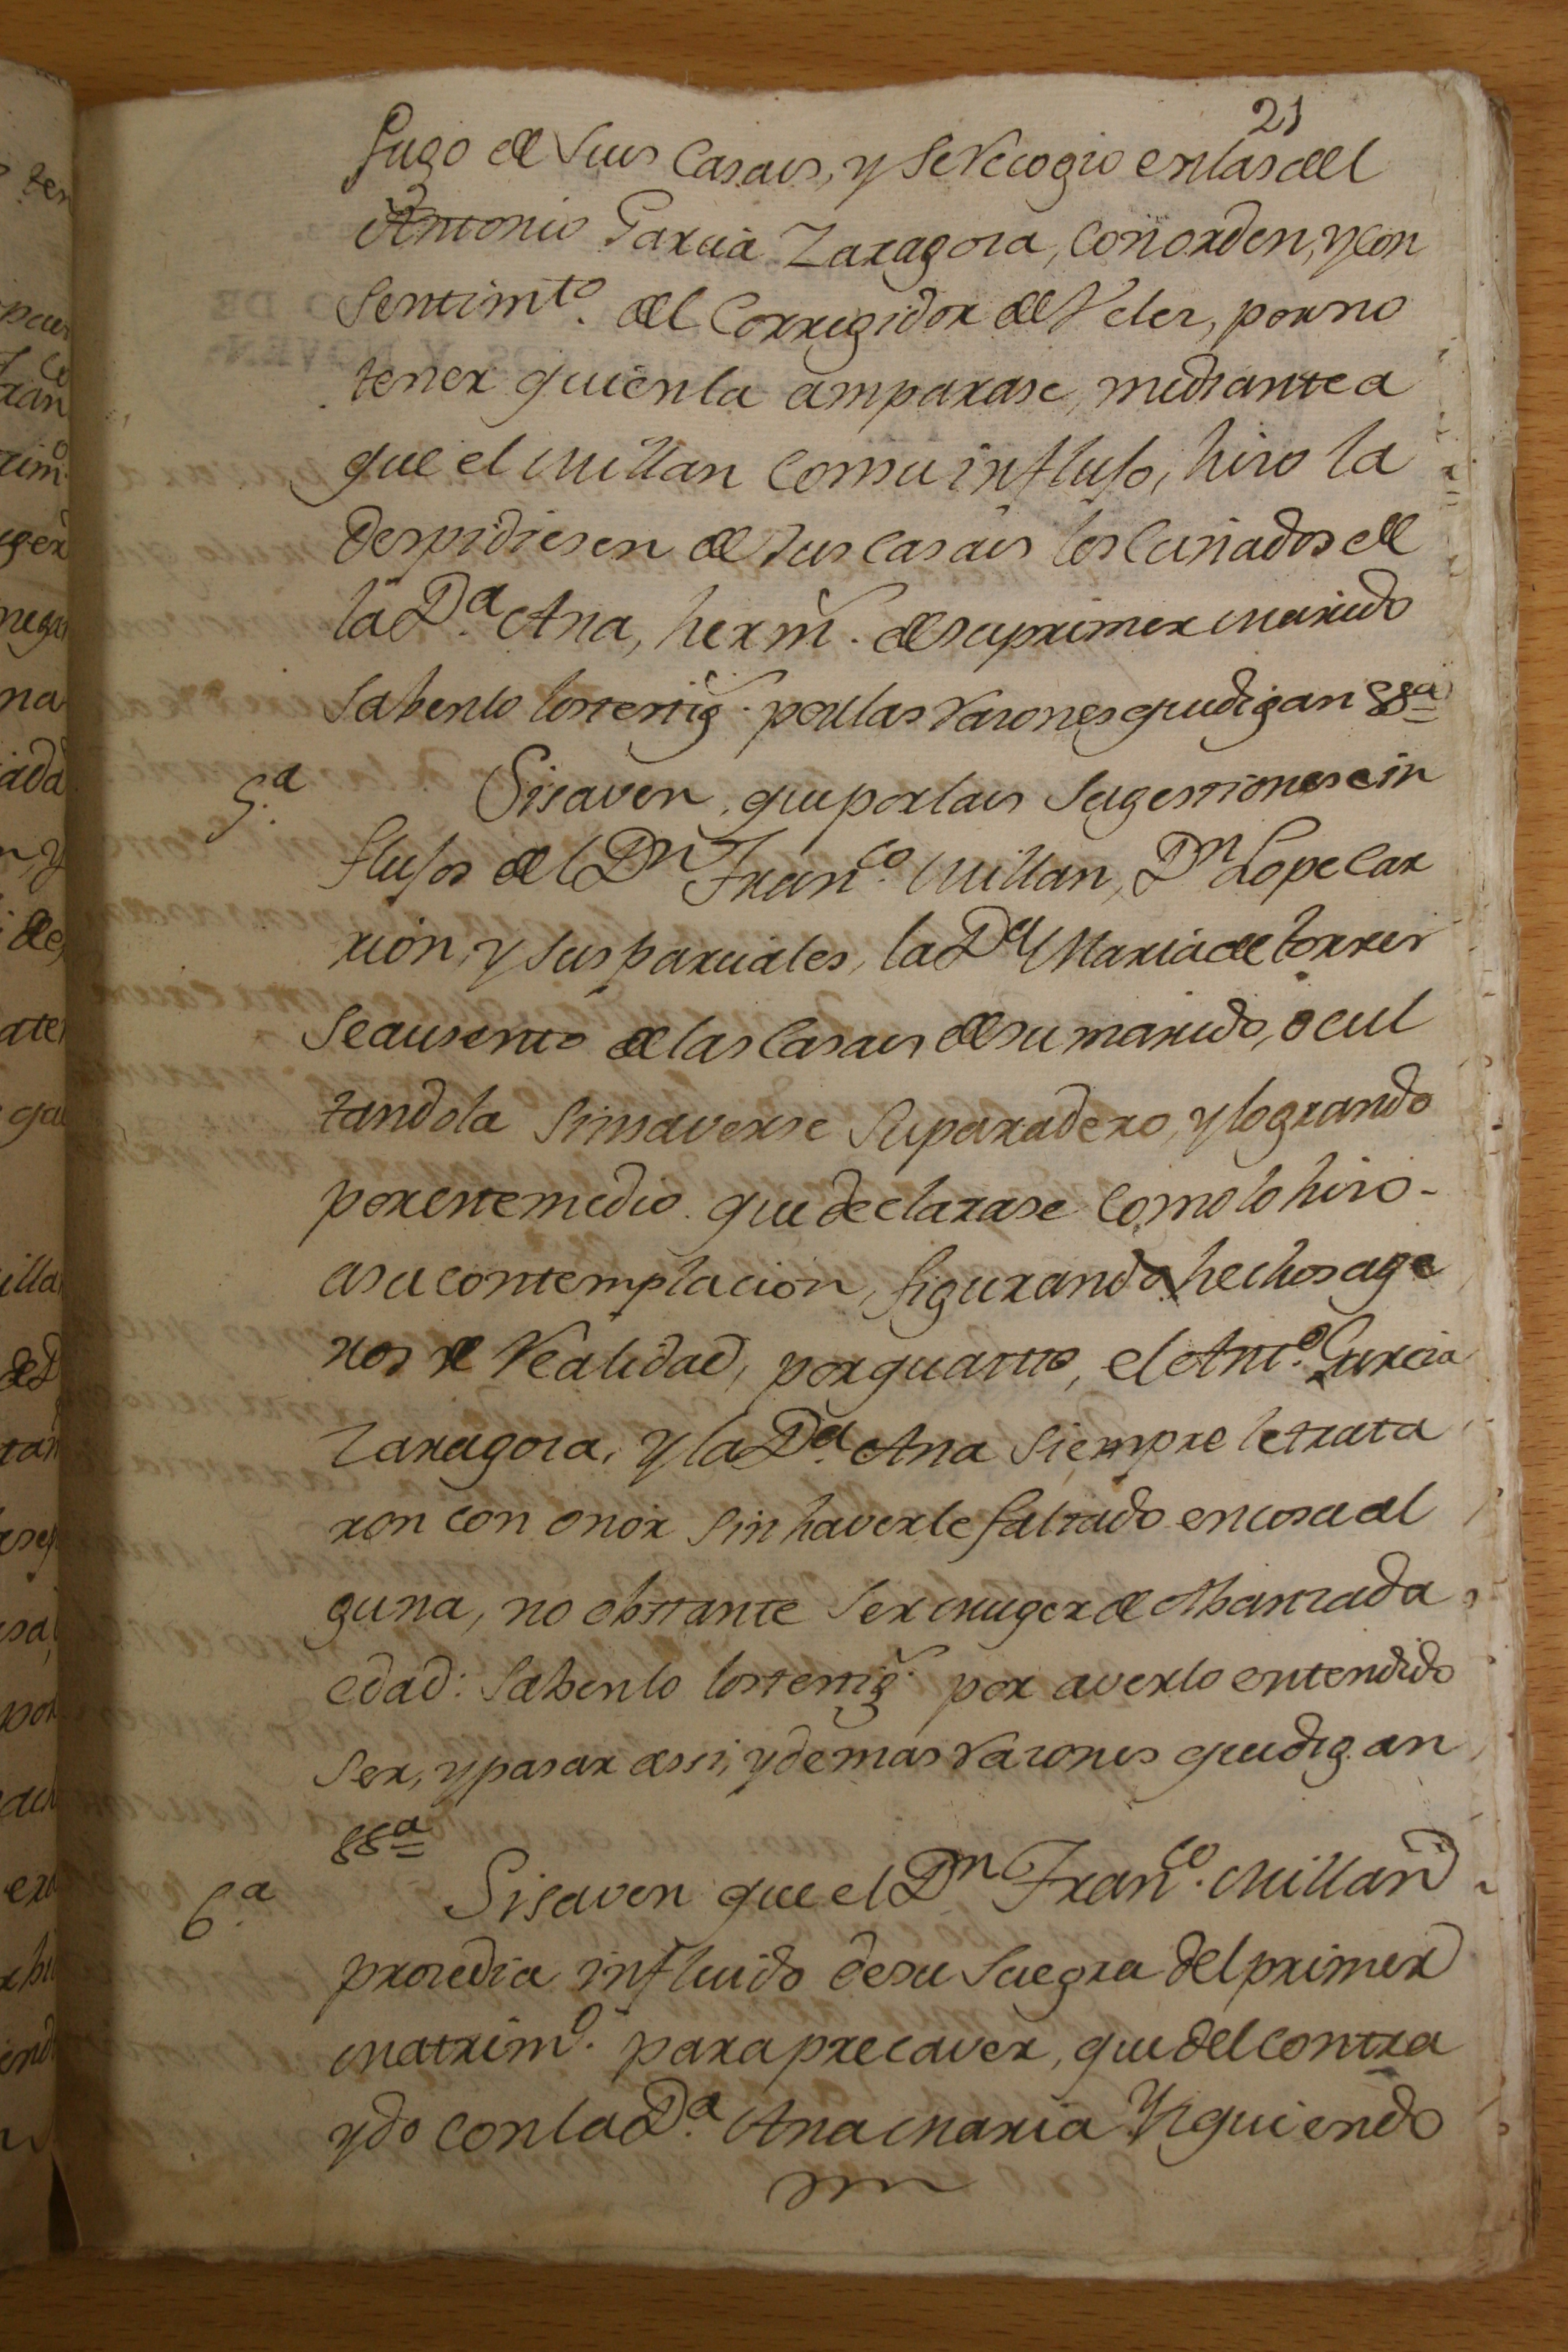 21
fugo de sus Casas, y se recogio en las del
Antonio Garcia Zaragoza, con orden, y con
sentimto. del Corregidor de Velez, por no
tener quien la amparase, mediante a
que el Millan con su influso, hizo la
despidiesen de sus casas los Cuñados de
la Da. Ana, herm. de su primer marido
Sabenlo los testig. por las razones que digan &&a
5.a
Si saven, que por las sugestiones e in
flusos del Dn Franco. Millan, Dn Lope Car
rion, y sus parciales, la Da Maria de torres
se ausento de las Casas de su marido, ocul
tandola sin saverse su paradero, y logrando
por este medio que declarase como lo hizo -
a su contemplacion, figurando hechos age
nos de Realidad, por quanto, el Anto. Garcia
Zaragoza, y la Da. Ana siempre le trata
ron con onor sin haverle faltado en cosa al
guna, no obstante ser muger de Abanzada
edad: Sabenlo los testig. por averlo entendido
ser, y pasar assi, y demas razones que digan
&&a
6.a
Si saven que el Dn Franco. Millan
prozedia influido de su Suegra del primer
matrimo. para precaver, que del contra
ydo con la Da. Ana Maria Yzquiendo